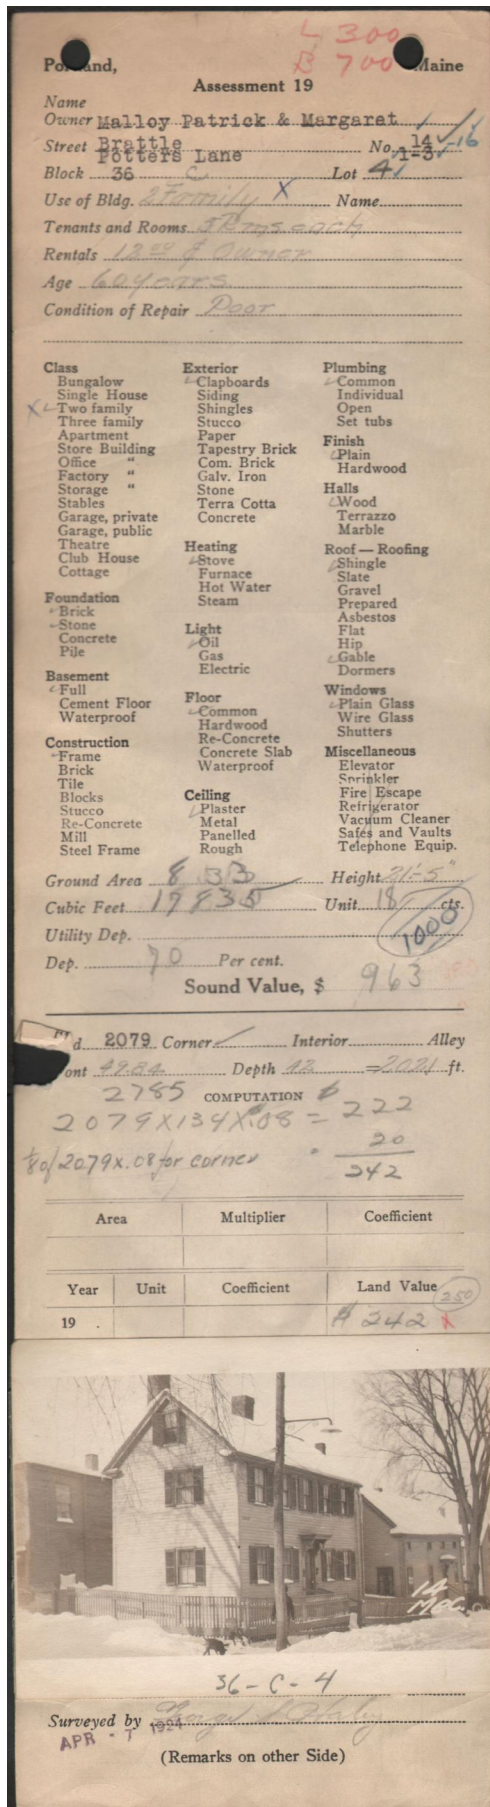 L 300
B 700
Portland, Maine
Assessment 19
Name
Owner Malloy Patrick & Margaret
Street Brattle No. 14-16
Potters Lane 1-3
Block 36 C Lot 4
Use of Bldg. 2 Family X Name
Tenants and Rooms 5 Rms each
Rentals 12.00 & Owner
Age 60 years
Condition of Repair Poor
Class
Bungalow
Single House
X Two family
Three family
Apartment
Store Building
Office "
Factory "
Storage "
Stables
Garage, private
Garage, public
Theatre
Club House
Cottage
Foundation
Brick
Stone
Concrete
Pile
Basement
Full
Cement Floor
Waterproof
Construction
Frame
Brick
Tile
Blocks
Stucco
Re-Concrete
Mill
Steel Frame
Exterior
Clapboards
Siding
Shingles
Stucco
Paper
Tapestry Brick
Com. Brick
Galv. Iron
Stone
Terra Cotta
Concrete
Heating
Stove
Furnace
Hot Water
Steam
Light
Oil
Gas
Electric
Floor
Common
Hardwood
Re-Concrete
Concrete Slab
Waterproof
Ceiling
Plaster
Metal
Panelled
Rough
Plumbing
Common
Individual
Open
Set tubs
Finish
Plain
Hardwood
Halls
Wood
Terrazzo
Marble
Roof — Roofing
Shingle
Slate
Gravel
Prepared
Asbestos
Flat
Hip
Gable
Dormers
Windows
Plain Glass
Wire Glass
Shutters
Miscellaneous
Elevator
Sprinkler
Fire Escape
Refrigerator
Vacuum Cleaner
Safes and Vaults
Telephone Equip.
Ground Area 833 Height 21'-5"
Cubic Feet 17835 Unit 18 cts.
Utility Dep. 1000
Dep. 70 Per cent.
Sound Value, $ 963
d 2079 Corner Interior Alley
ont 49.84 Depth 42 = 2021 ft.
2785 COMPUTATION
2079 X 134 X .08 = 222
1/80 of 2079 x .08 for corner 20
242
Area Multiplier Coefficient
Year Unit Coefficient Land Value 250
19 . $ 242 X
14
36-C-4
Surveyed by
APR - 7 1924
(Remarks on other Side)